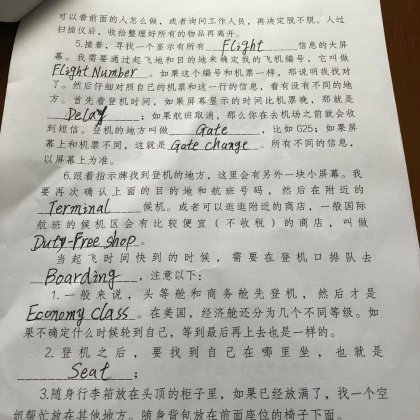 可以看前面的人怎么做，或者询问工作人员，再决定脱不脱。人过
扫描仪后，收拾整理好所有的物品再离开。
5.接着，寻找一个显示有所有 Flight 信息的大屏
幕。我需要通过起飞地和目的地来确定我的飞机编号，它叫做
Flight Number。如果这个编号和机票一样，那说明我找对
了。然后仔细对照自己的机票和这一行的信息，看有没有不同的地
方。首先看登机时间，如果屏幕显示的时间比机票晚，那就是
Delay；如果航班取消，那么你在去机场之前就会收
到短信。登机的地方叫做 Gate，比如 G25；如果屏
幕上和机票不同，这就是 Gate change。所有不同的信息，
以屏幕上为准。
6.跟着指示牌找到登机的地方，这里会有另外一块小屏幕。我
要再次确认上面的目的地和航班号码，然后在附近的
Terminal 候机。或者可以逛逛附近的商店，一般国际
航班的候机区会有比较便宜（不收税）的商店，叫做
Duty-Free shop。
当起飞时间快到的时候，需要在登机口排队去
Boarding，注意以下：
1.一般来说，头等舱和商务舱先登机，然后才是
Economy class。在美国，经济舱还分为几个不同等级。如
果不确定什么时候轮到自己，等到最后再上去也是一样的。
2.登机之后，要找到自己在哪里坐，也就是
Seat；
3.随身行李箱放在头顶的柜子里，如果已经放满了，找一个空
姐帮忙放在其他地方。随身背包放在前面座位的椅子下面。